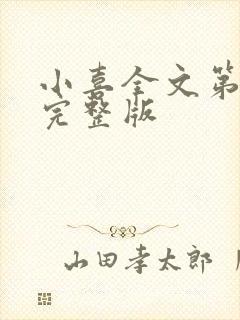 小喜全文第
完整版
山田孝太郎